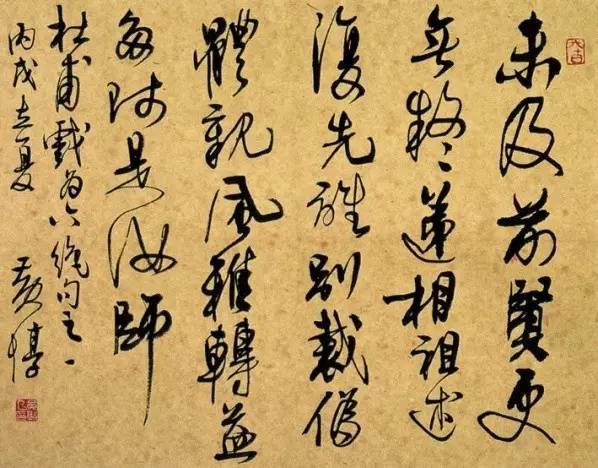 未及前賢更
無疑遞相祖述
復先誰別裁偽
體親風雅轉益
多師是汝師
杜甫戲為六絕句之一
丙戌立夏 黃惇